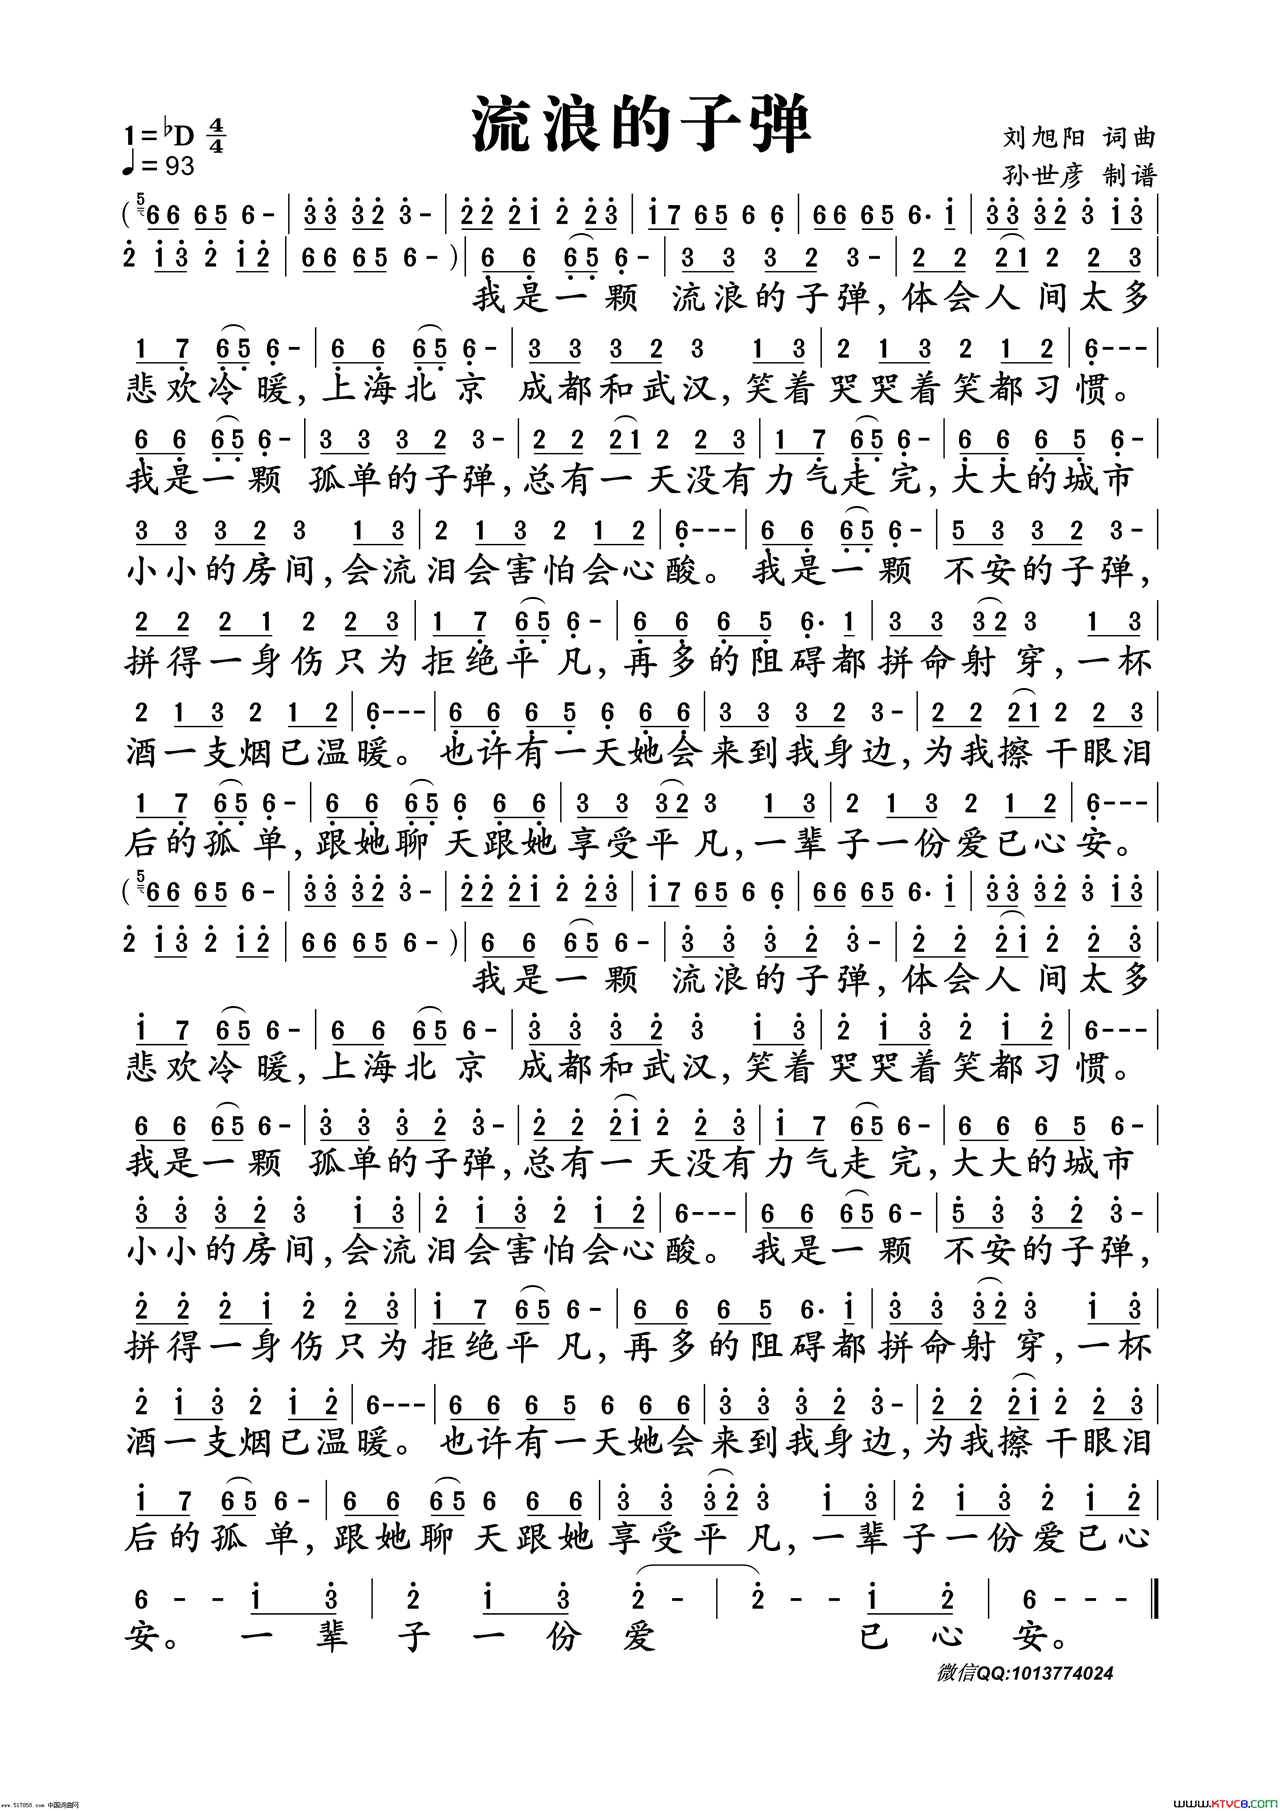 流浪的子弹
1=♭D 4/4
♩=93
刘旭阳 词曲
孙世彦 制谱
( 5 66 65 6- | 33 32 3- | 22 21 2 23 | 17 65 6 6 | 66 65 6· 1 | 33 32 3 13 |
2 13 2 12 | 66 65 6- ) | 6 6 65 6- | 3 3 3 2 3- | 2 2 21 2 2 3 |
我是一颗 流浪的子弹,体会人间太多
1 7 65 6- | 6 6 65 6- | 3 3 3 2 3 1 3 | 2 1 3 2 1 2 | 6--- |
悲欢冷暖,上海北京 成都和武汉,笑着哭哭着笑都习惯。
6 6 65 6- | 3 3 3 2 3- | 2 2 21 2 2 3 | 1 7 65 6- | 6 6 6 5 6- |
我是一颗 孤单的子弹,总有一天没有力气走完,大大的城市
3 3 3 2 3 1 3 | 2 1 3 2 1 2 | 6--- | 6 6 65 6- | 5 3 3 2 3- |
小小的房间,会流泪会害怕会心酸。我是一颗 不安的子弹,
2 2 2 1 2 2 3 | 1 7 65 6- | 6 6 6 5 6· 1 | 3 3 32 3 1 3 |
拼得一身伤只为拒绝平凡,再多的阻碍都拼命射穿,一杯
2 1 3 2 1 2 | 6--- | 6 6 6 5 6 6 6 | 3 3 3 2 3- | 2 2 21 2 2 3 |
酒一支烟已温暖。也许有一天她会来到我身边,为我擦干眼泪
1 7 65 6- | 6 6 65 6 6 6 | 3 3 32 3 1 3 | 2 1 3 2 1 2 | 6--- |
后的孤单,跟她聊天跟她享受平凡,一辈子一份爱已心安。
( 5 66 65 6- | 33 32 3- | 22 21 2 23 | 17 65 6 6 | 66 65 6· 1 | 33 32 3 13 |
2 13 2 12 | 66 65 6- ) | 6 6 65 6- | 3 3 3 2 3- | 2 2 21 2 2 3 |
我是一颗 流浪的子弹,体会人间太多
1 7 65 6- | 6 6 65 6- | 3 3 3 2 3 1 3 | 2 1 3 2 1 2 | 6--- |
悲欢冷暖,上海北京 成都和武汉,笑着哭哭着笑都习惯。
6 6 65 6- | 3 3 3 2 3- | 2 2 21 2 2 3 | 1 7 65 6- | 6 6 6 5 6- |
我是一颗 孤单的子弹,总有一天没有力气走完,大大的城市
3 3 3 2 3 1 3 | 2 1 3 2 1 2 | 6--- | 6 6 65 6- | 5 3 3 2 3- |
小小的房间,会流泪会害怕会心酸。我是一颗 不安的子弹,
2 2 2 1 2 2 3 | 1 7 65 6- | 6 6 6 5 6· 1 | 3 3 32 3 1 3 |
拼得一身伤只为拒绝平凡,再多的阻碍都拼命射穿,一杯
2 1 3 2 1 2 | 6--- | 6 6 6 5 6 6 6 | 3 3 3 2 3- | 2 2 21 2 2 3 |
酒一支烟已温暖。也许有一天她会来到我身边,为我擦干眼泪
1 7 65 6- | 6 6 65 6 6 6 | 3 3 32 3 1 3 | 2 1 3 2 1 2 |
后的孤单,跟她聊天跟她享受平凡,一辈子一份爱已心
6 - - 1 3 | 2 1 3 2 - | 2 - - 1 2 | 6 - - - ‖
安。 一辈子一份爱 已心安。
微信QQ:1013774024
www.517858.com 中国词曲网
WWW.KTVC8.COM